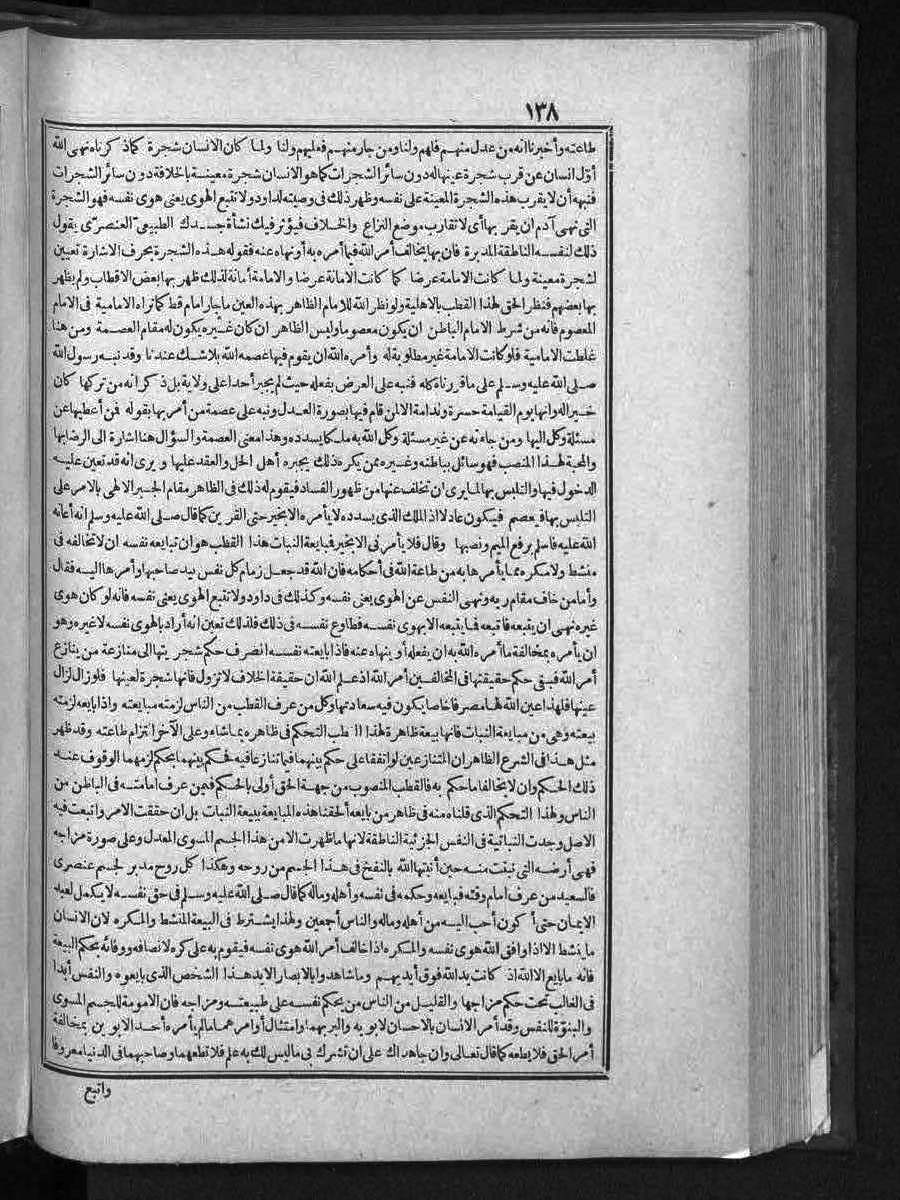 ١٣٨
طاعته وأخبرنا انه من عدل منهم فلهم ولنا ومن جار منهم فعليهم ولنا ولما كان الانسان شجرة كما ذكرناه نهى الله
أوّل انسان عن قرب شجرة عينها له دون سائر الشجرات كما هو الانسان شجرة معينة بالخلافة دون سائر الشجرات
فنبهه أن لا يقرب هذه الشجرة المعينة على نفسه وظهر ذلك فى وصيته لداود ولا تتبع الهوى يعنى هوى نفسه فهو الشجرة
التى نهى آدم ان يقربها أى لا تقارب موضع النزاع والخلاف فيؤثر فيك نشأة جسدك الطبيعىّ العنصرىّ يقول
ذلك لنفسه الناطقة المدبرة فان بها يخالف أمر الله فيما أمره به أو نهاه عنه فقوله هذه الشجرة بحرف الاشارة تعيين
لشجرة معينة ولما كانت الامامة عرضا كما كانت الامانة عرضا والامامة أمانة لذلك ظهر بها بعض الاقطاب ولم يظهر
بها بعضهم فنظر الحق لهذا القطب بالاهلية ولو نظر الله للامام الظاهر بهذه العين ما جار امام قط كما تراه الامامية فى الامام
المعصوم فانه من شرط الامام الباطن ان يكون معصوما وليس الظاهر ان كان غيره يكون له مقام العصمة ومن هنا
غلطت الامامية فلو كانت الامامة غير مطلوبة له وأمره الله ان يقوم فيها عصمه الله بلا شك عندنا وقد نبه رسول الله
صلى الله عليه وسلم على ما قررناه كله فنبه على العرض بفعله حيث لم يجبر أحدا على ولاية بل ذكر انه من تركها كان
خيرا له وانها يوم القيامة حسرة وندامة الا لمن قام فيها بصورة العدل ونبه على عصمة من أمر بها بقوله فمن أعطيها عن
مسئلة وكل اليها ومن جاءته عن غير مسئلة وكل الله به ملكا يسدده وهذا معنى العصمة والسؤال هنا اشارة الى الرضا بها
والمحبة لهذا المنصب فهو سائل بباطنه وغيره ممن يكره ذلك يجبره أهل الحل والعقد عليها ويرى انه قد تعين عليه
الدخول فيها والتلبس بها لما يرى ان تخلف عنها من ظهور الفساد فيقوم له ذلك فى الظاهر مقام الجبر الالهى بالامر على
التلبس بها فيعصم فيكون عادلا اذ الملك الذى يسدده لا يأمره الا بخير حتى القرين كما قال صلى الله عليه وسلم انه أعانه
الله عليه فاسلم برفع الميم ونصبها وقال فلا يأمرنى الا بخير فمبايعة النبات هذا القطب هو ان تبايعه نفسه ان لا تخالفه فى
منشط ولا مكره مما يأمرها به من طاعة الله فى أحكامه فان الله قد جعل زمام كل نفس بيد صاحبها وأمرها اليه فقال
وأما من خاف مقام ربه ونهى النفس عن الهوى يعنى نفسه وكذلك فى داود ولا تتبع الهوى يعنى نفسه فانه لو كان هوى
غيره نهى ان يتبعه فما تبعه فما يتبعه الا بهوى نفسه فطاوع نفسه فى ذلك فلذلك تعين انه أراد بالهوى نفسه لا غيره وهو
ان يأمره بمخالفة ما أمره الله به ان يفعله أو ينهاه عنه فاذا بايعته نفسه انصرف حكم شجريتها الى منازعة من ينازع
أمر الله فبقى حكم حقيقتها فى المخالفين أمر الله اذ علم الله ان حقيقة الخلاف لا تزول فانها شجرة لعينها فلو زال لزال
عينها فلهذا عين الله لها مصرفا خاصا يكون فيه سعادتها وكل من عرف القطب من الناس لزمته مبايعته واذا بايعه لزمته
بيعته وهى من مبايعة النبات فانها بيعة ظاهرة لهذا القطب التحكم فى ظاهره بما شاء وعلى الآخر التزام طاعته وقد ظهر
مثل هذا فى الشرع الظاهر ان المتنازعين لو اتفقا على حكم بينهما فيما تنازعا فيه فحكم بينهما بحكم لزمهما الوقوف عند
ذلك الحكم وان لا يخالفا ما حكم به فالقطب المنصوب من جهة الحق أولى بالحكم فيمن عرف امامته فى الباطن من
الناس ولهذا التحكم الذى قلناه منه فى ظاهر من بايعه ألحقنا هذه المبايعة ببيعة النبات بل ان حققت الامر واتبعت فيه
الاصل وجدت النباتية فى النفس الجزئية الناطقة لانها ما ظهرت الا من هذا الجسم المسوى المعدل وعلى صورة مزاجه
فهى أرضه التى نبتت منه حين أنبتها الله بالنفخ فى هذا الجسم من روحه وهكذا كل روح مدبر لجسم عنصرى
فالسعيد من عرف امام وقته فبايعه وحكمه فى نفسه وأهله وماله كما قال صلى الله عليه وسلم فى حق نفسه لا يكمل لعبد
الايمان حتى أكون أحب اليه من أهله وماله والناس أجمعين ولهذا يشترط فى البيعة المنشط والمكره لان الانسان
ما ينشط الا اذا وافق الله هوى نفسه والمكره اذا خالف أمر الله هوى نفسه فيقوم به على كره لانصافه ووفائه بحكم البيعة
فانه ما بايع الا الله اذ كانت يد الله فوق أيديهم وما شاهدوا بالابصار الا يد هذا الشخص الذى بايعوه والنفس أبدا
فى الغالب تحت حكم مزاجها والقليل من الناس من يحكم نفسه على طبيعته ومزاجه فان الامومة للجسم المسوى
والبنوّة للنفس وقد أمر الانسان بالاحسان لابويه والبر بهما وامتثال أوامرهما ما لم يأمره أحد الابوين بمخالفة
أمر الحق فلا يطعه كما قال تعالى وان جاهداك على ان تشرك بى ما ليس لك به علم فلا تطعهما وصاحبهما فى الدنيا معروفا
واتبع